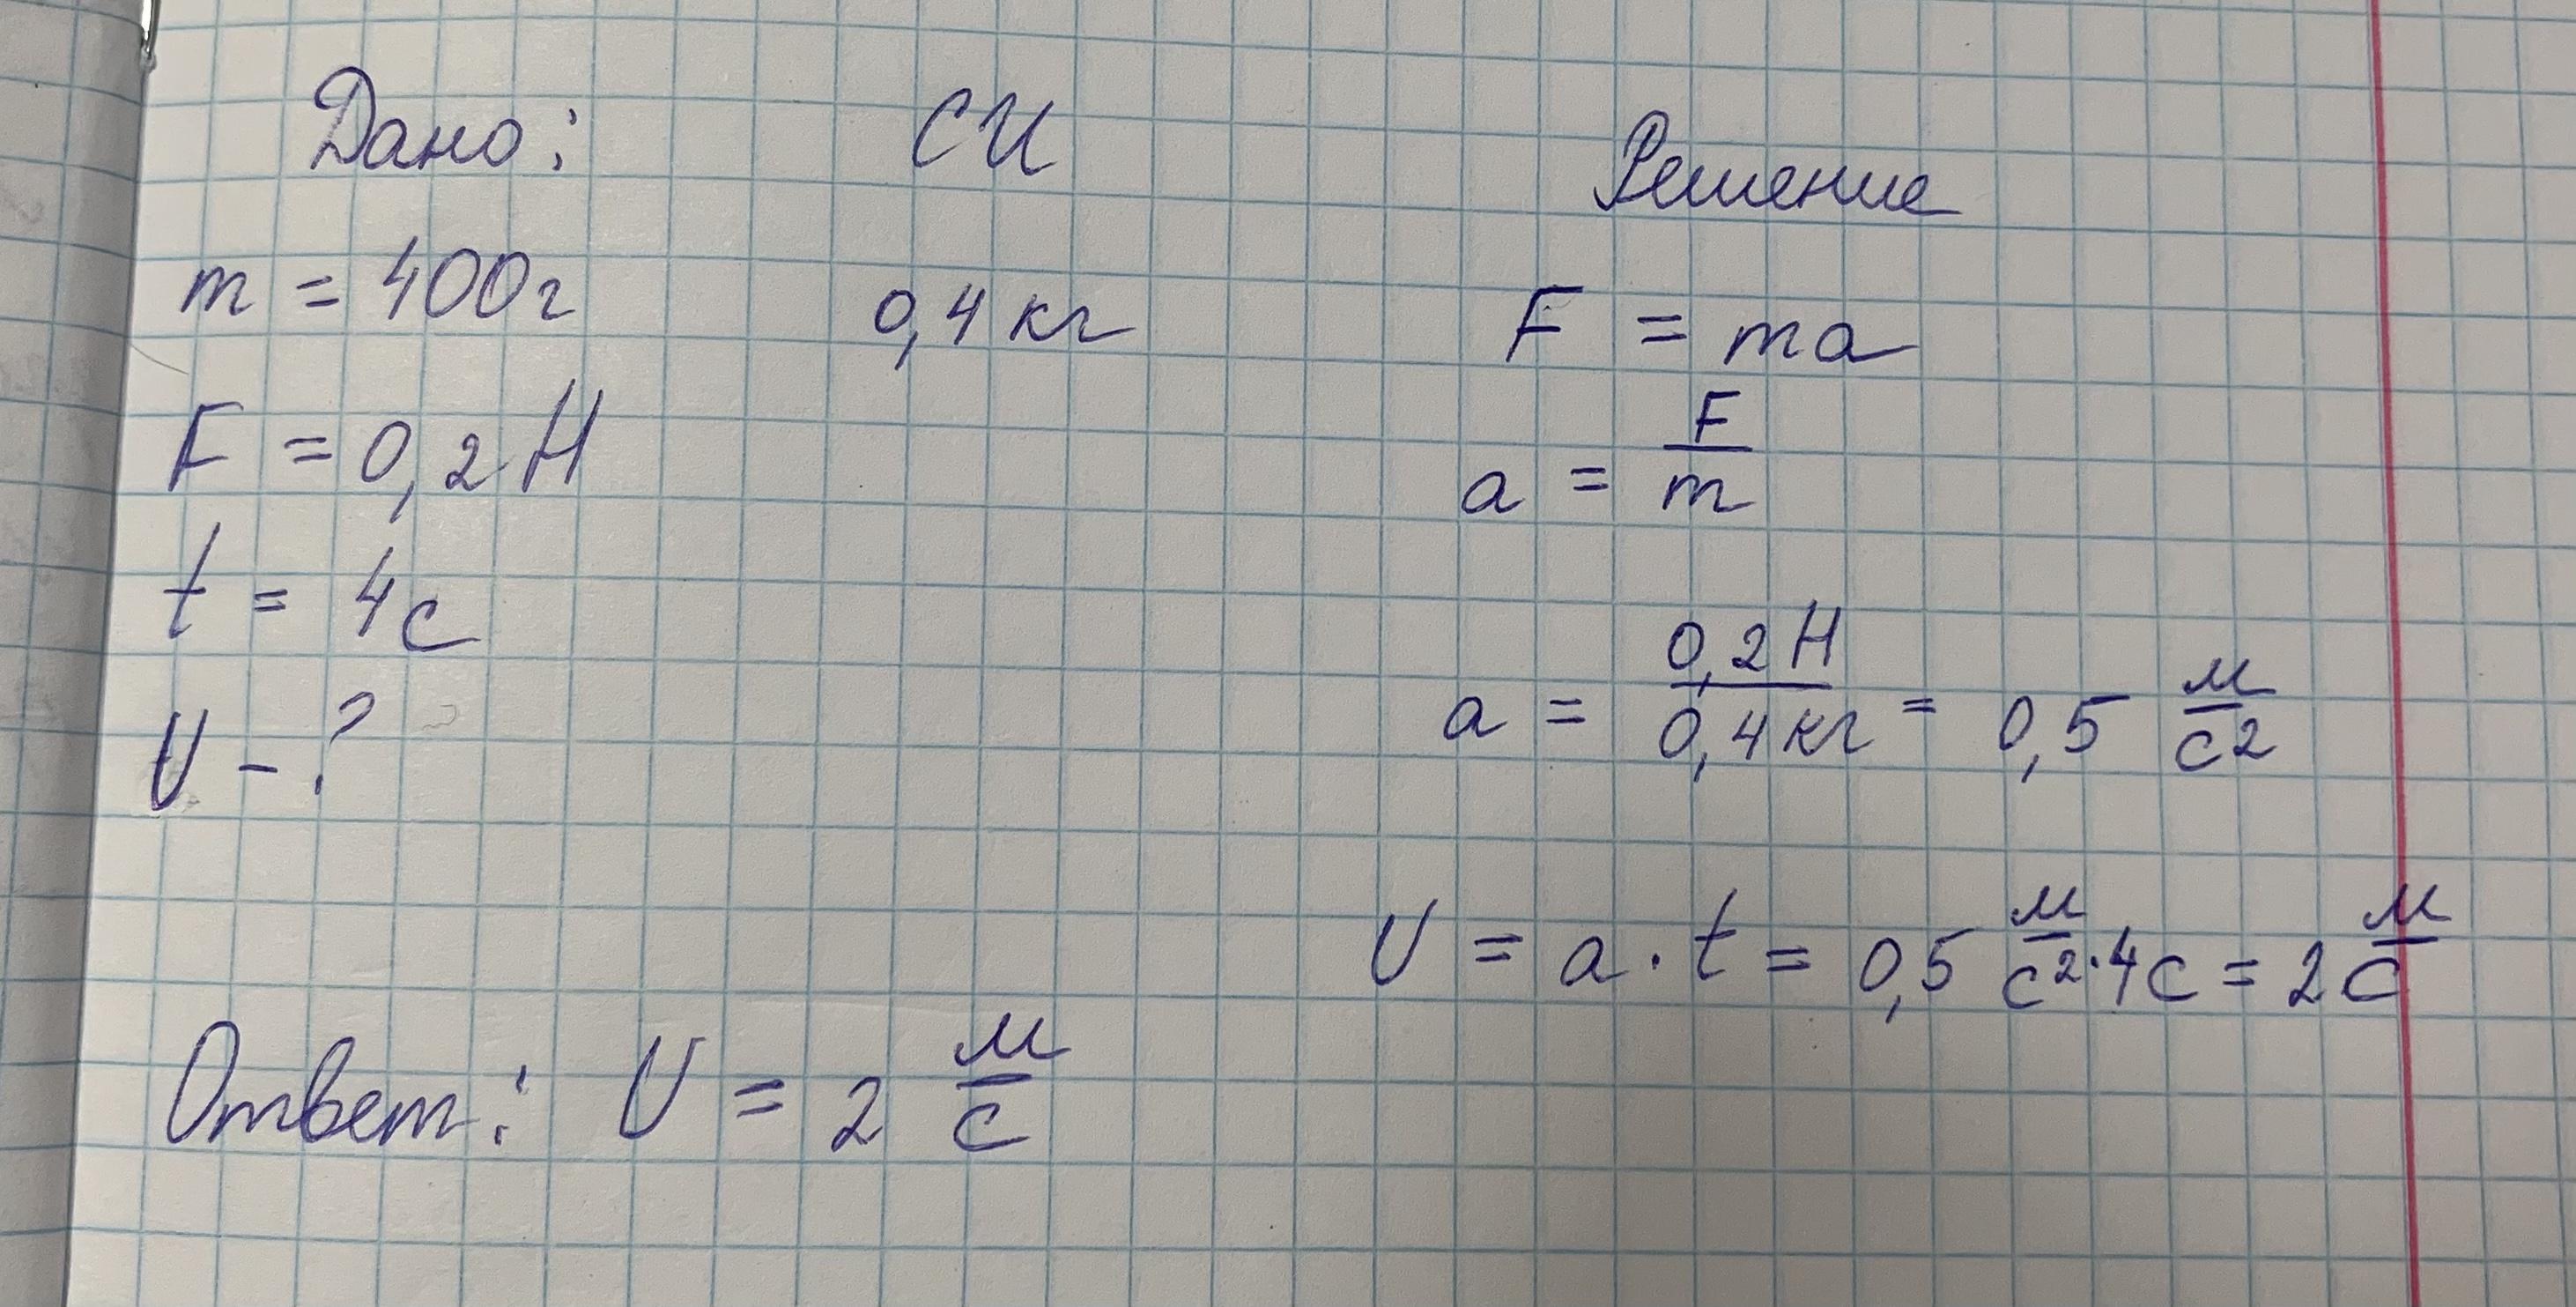 Дано: СИ Решение
m = 400г 0,4 кг
F = 0,2 Н
t = 4 с
υ - ?
F = ma
a = F/m
a = 0,2 Н / 0,4 кг = 0,5 м/с²
υ = a · t = 0,5 м/с² · 4 с = 2 м/с
Ответ: υ = 2 м/с